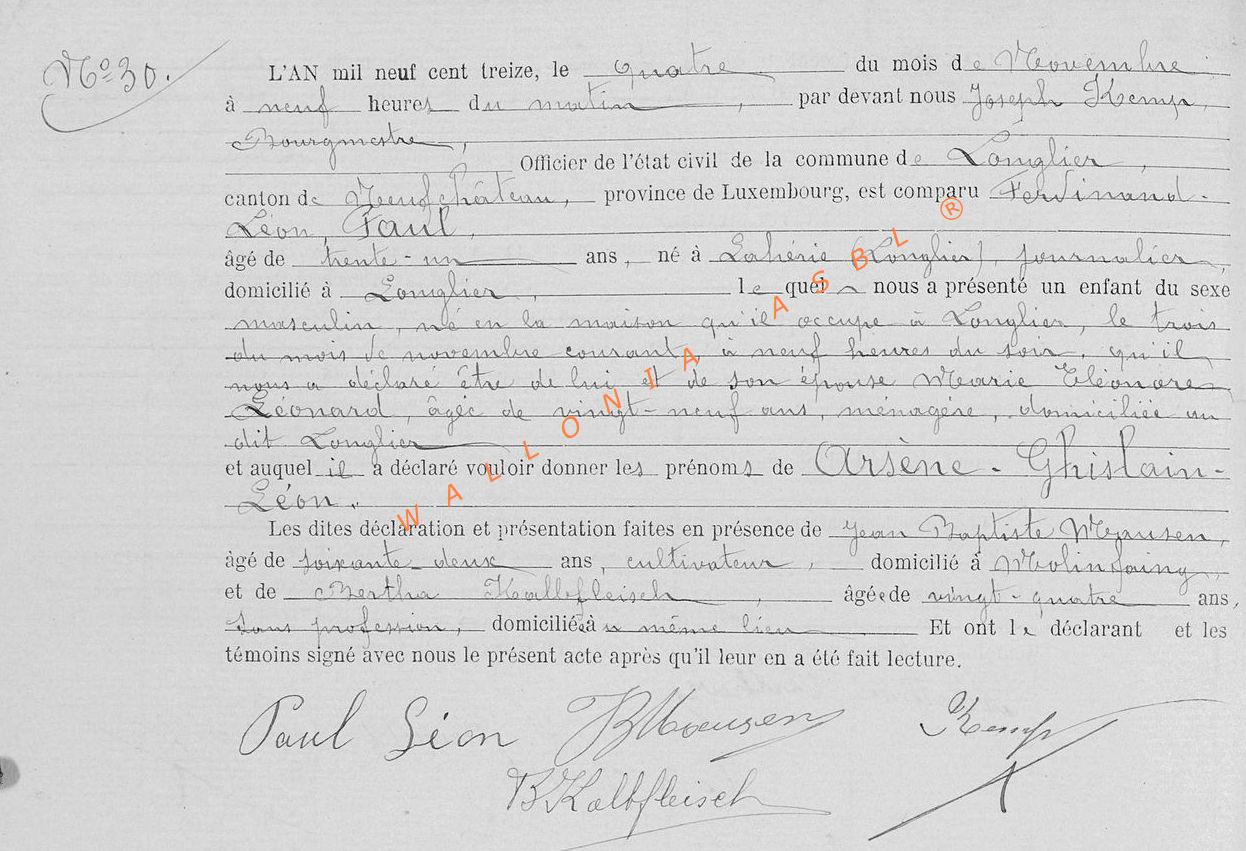 Nº 30.
L'AN mil neuf cent treize, le quatre du mois de Novembre
à neuf heures du matin, par devant nous Joseph Kemp,
Bourgmestre,
Officier de l'état civil de la commune de Longlier,
canton de Neufchâteau, province de Luxembourg, est comparu Ferdinand-
Léon, Paul,
âgé de trente-un ans, né à Lahérie (Longlier), journalier,
domicilié à Longlier, lequel nous a présenté un enfant du sexe
masculin, né en la maison qu'il occupe à Longlier, le trois
du mois de novembre courant, à neuf heures du soir, qu'il
nous a déclaré être de lui et de son épouse Marie Eléonore
Léonard, âgée de vingt-neuf ans, ménagère, domiciliée au
dit Longlier
et auquel il a déclaré vouloir donner les prénoms de Arsène-Ghislain-
Léon.
Les dites déclaration et présentation faites en présence de Jean Baptiste Mausen,
âgé de soixante-deux ans, cultivateur, domicilié à Molinfaing,
et de Bertha Kalbfleisch, âgée de vingt-quatre ans,
sans profession, domiciliée au même lieu Et ont le déclarant et les
témoins signé avec nous le présent acte après qu'il leur en a été fait lecture.
Paul Léon JBMausen Kemp
B Kalbfleisch
WALLONIA ASBL ®